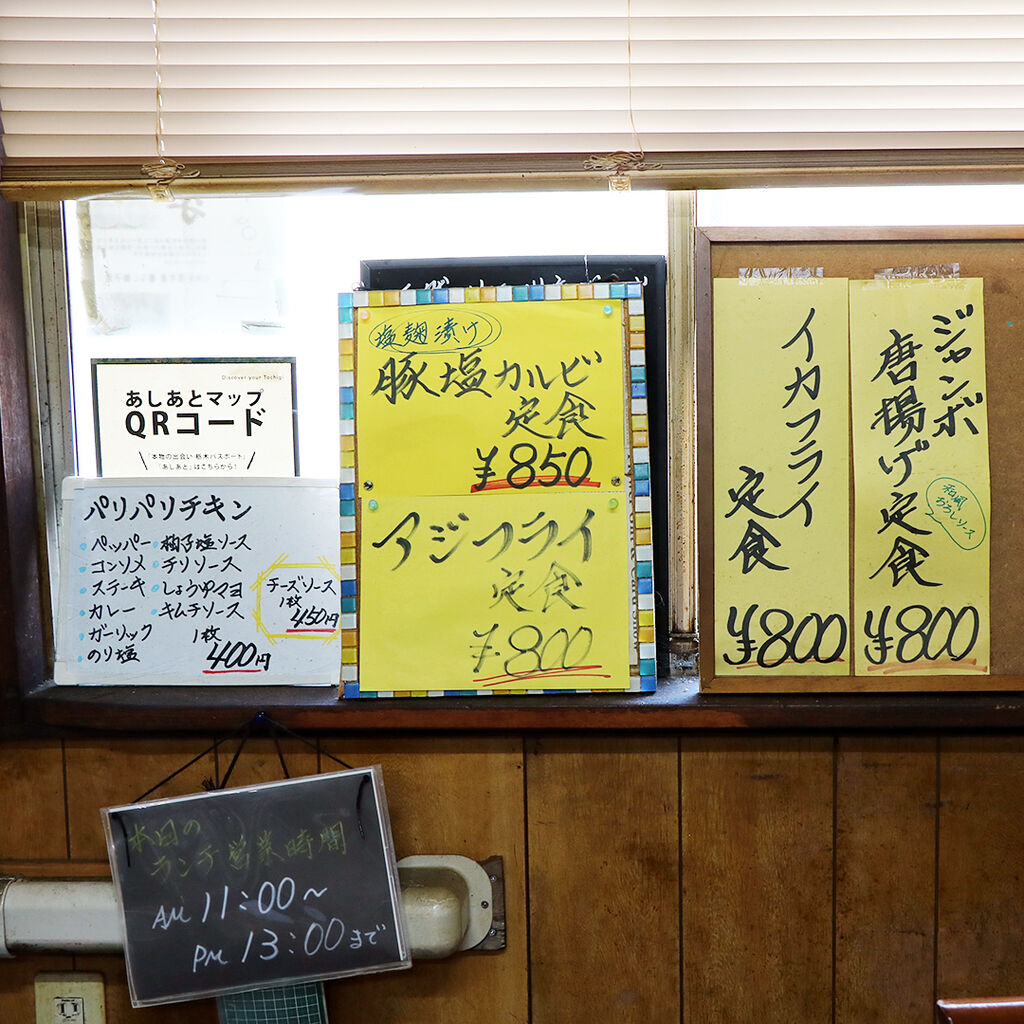 Discover your Tochigi
あしあとマップ
QRコード
「本物の出会い 栃木パスポート」
「あしあと」はこちらから!
パリパリチキン
ペッパー
コンソメ
ステーキ
カレー
ガーリック
のり塩
柚子塩ソース
チリソース
しょうゆマヨ
キムチソース
1枚
400円
チーズソース
1枚
450円
塩麹漬け
豚塩カルビ
定食
¥850
アジフライ
定食
¥800
イカフライ
定食
¥800
ジャンボ
唐揚げ定食
和風
おろしソース
¥800
本日の
ランチ営業時間
AM 11:00~
PM 13:00まで